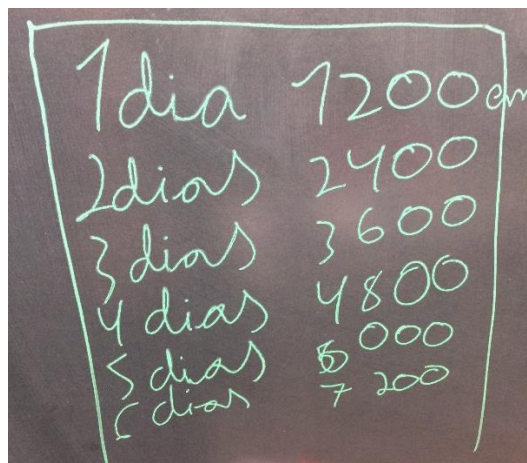 1 dia 1200 cm
2 dias 2400
3 dias 3600
4 dias 4800
5 dias 6000
6 dias 7200